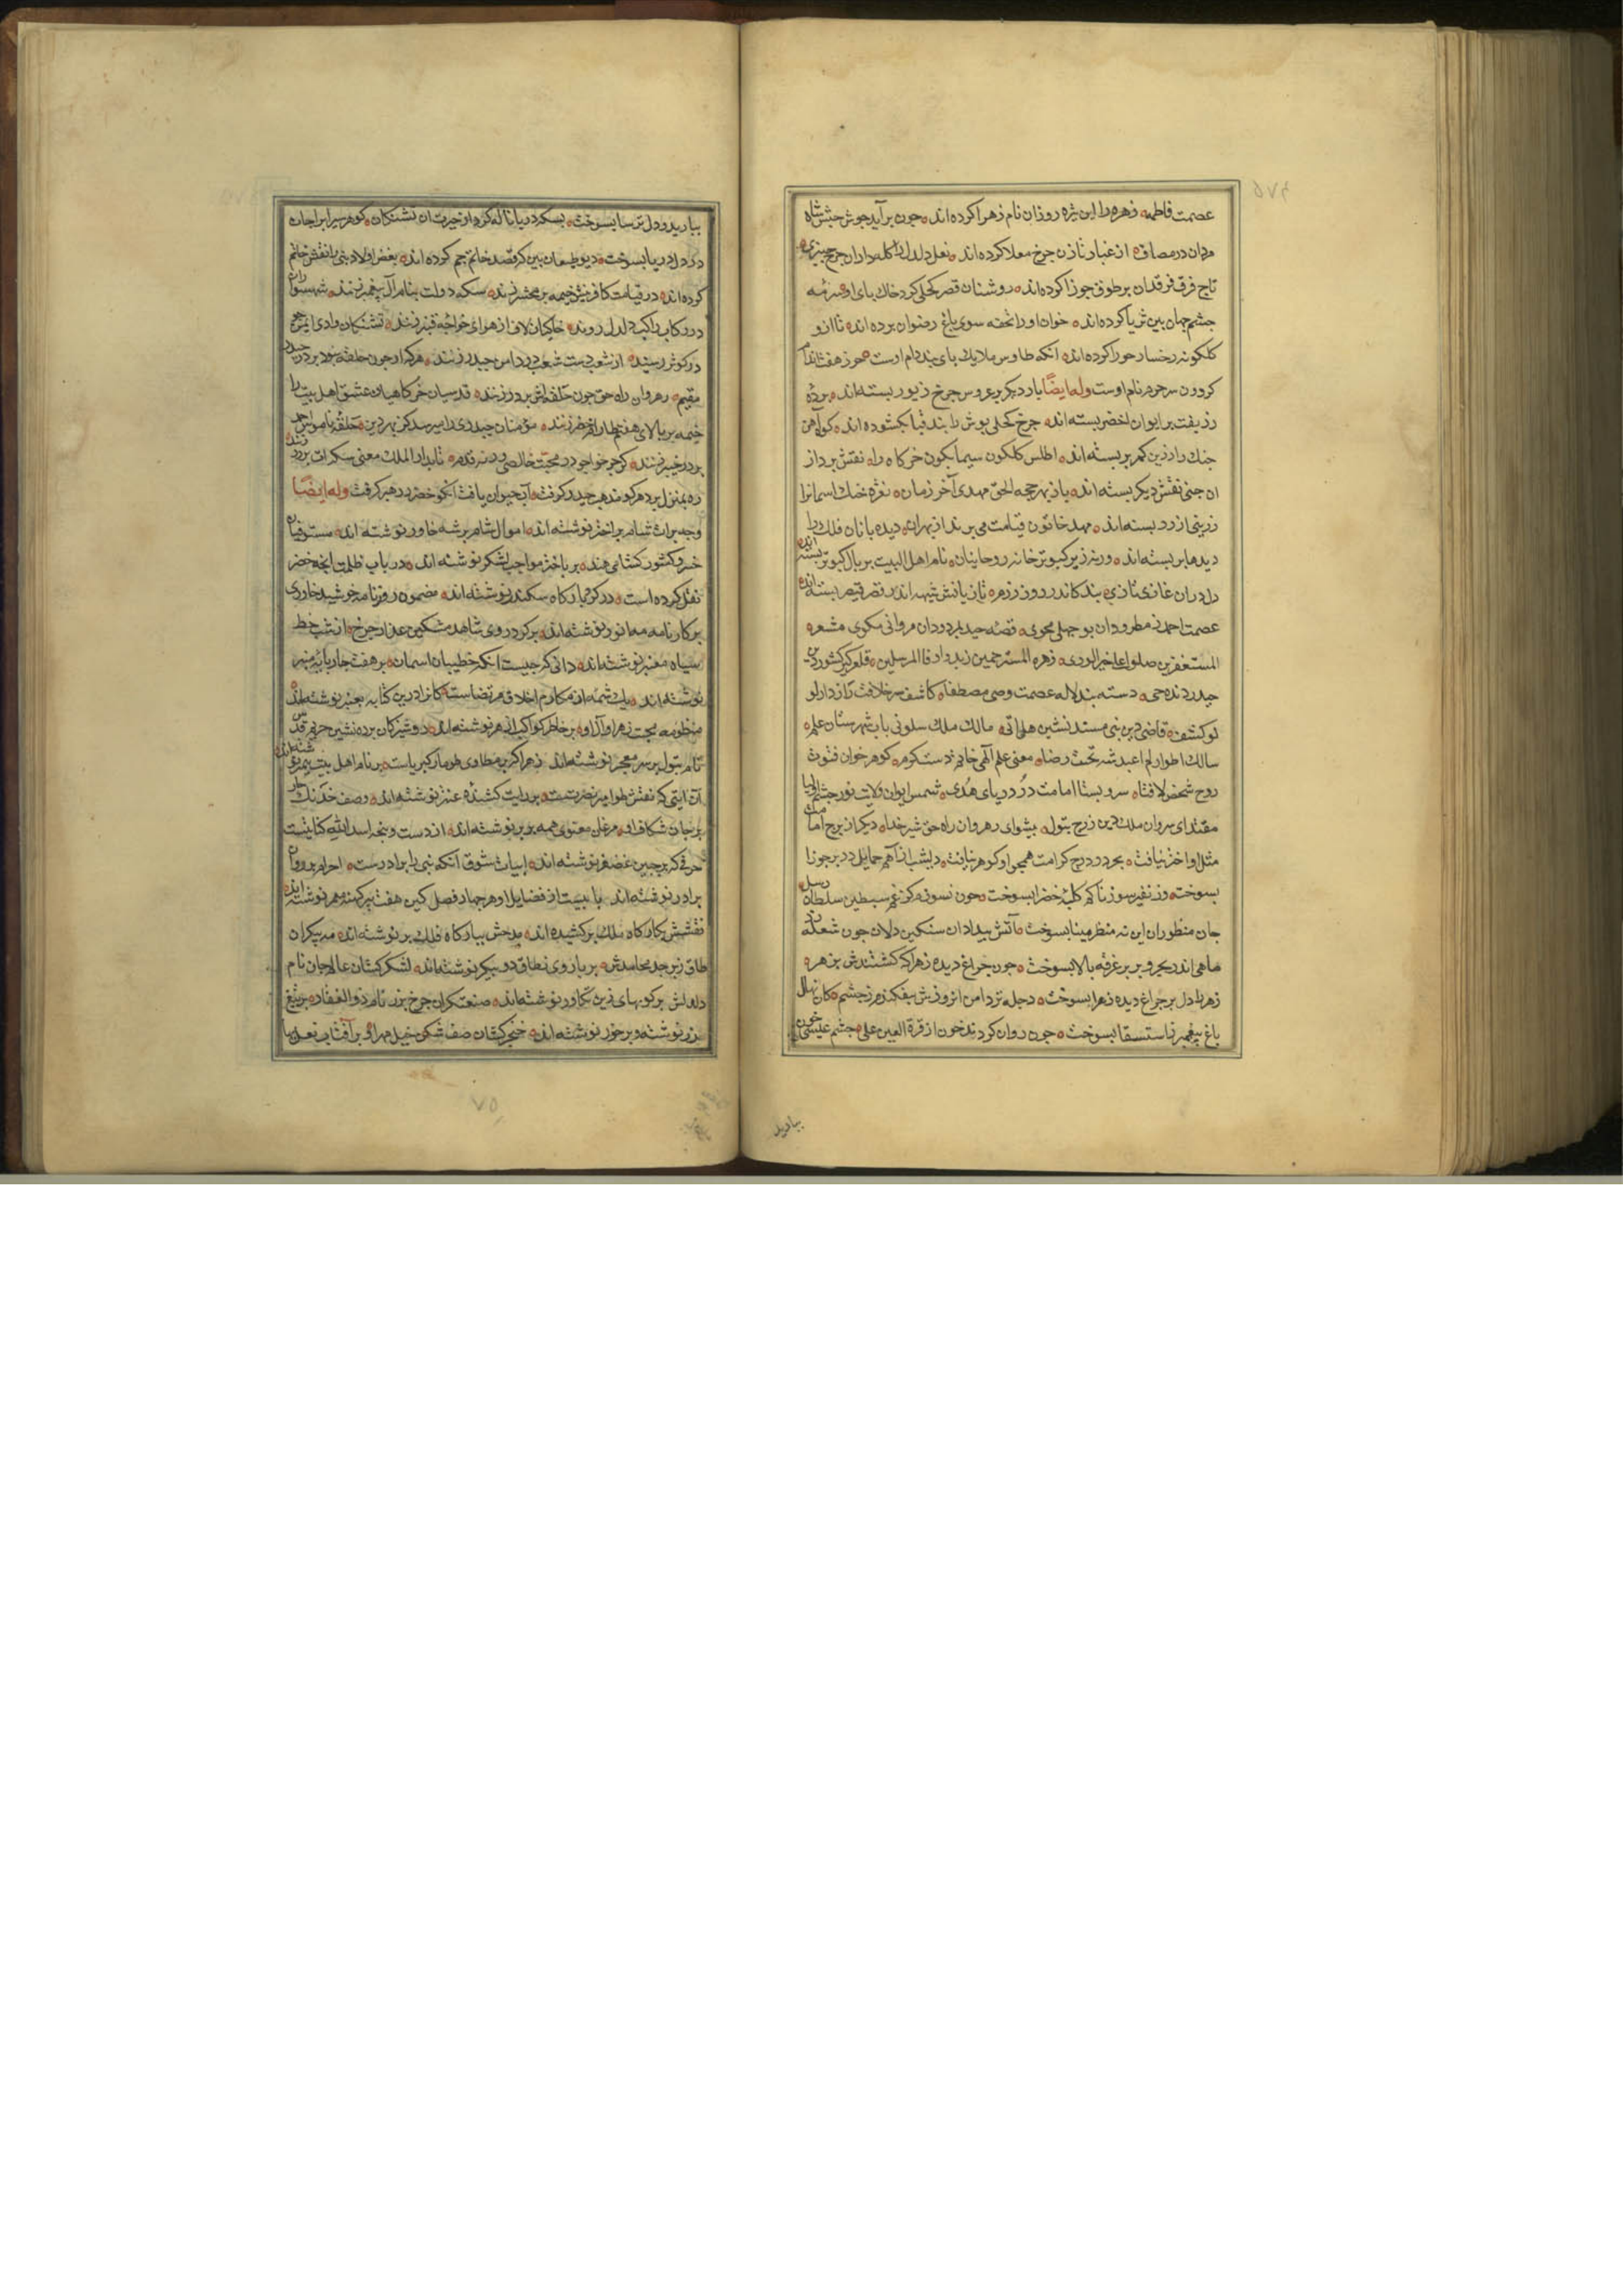 عصمت فاطمه زهره را این نژه روزان نام زهرا کرده‌اند چون برآید جوش جیش شاه
مردان در مصاف از غبار تازن چرخ معلا کرده‌اند نعل دلدل را کله داران چرخ چنبری
تاج فرق فرقدان بر طوق جوزا کرده‌اند روشنان قصر کحلی گرد خاک پای او سرمه
چشم جهان بین ثریا کرده‌اند خوان او را تحفه سوی باغ رضوان برده‌اند تا از و
کلکونه رخسار حورا کرده‌اند انکه طاوس ملایک پای بند دام اوست حوز هفت اندام
کردون سر حرم نام اوست وله ایضًا باز دیکر بر عروس چرخ زیور بسته‌اند پرده
زر بفت بر ایوان اخضر بسته‌اند چرخ کحلی پوش را بند قبا بکشوده‌اند کوه آهن
جنک را زرین کمر بر بسته‌اند اطلس کلکون سیمابکون خرکاه را نقش پرداز
ان چینی نقش دیکر بسته‌اند باز بهر حجه الحق مهدی آخر زمان نقره خنک اسمانرا
زرینی از زر بسته‌اند مهد خاتون قیامت می برند از بهر ان دیده بانان فلک را
دیدها بر بسته‌اند ورنه زیر کبوتر خانه روحانیان نام اهل البیت بر بال کبوتر بسته‌اند
دل دران غازی تازی بند کاندر روز رزم تازیانش شیهه اندر قصر قیصر بسته‌اند
عصمت احمد ز مطرودان بوجهلی مجوی قصه حیدر به مردودان مروانی مکوی مشعره
المستغفرین صلوا علی خیر الوری زهره المسترحمین زیدوا وفا المرسلین قلعه کیر کشور دین
حیدر درنده حی دسته بند لاله عصمت وصی مصطفا کاشف سر خلافت رازدار لو
لو کشف قاضی دین نبی مسند نشین هل اتی مالک ملک سلونی باب شهرستان علم
سالک اطوار لم اعبد شه تخت رضا معنی علم الهی خاتم دست کرم کوهر خوان فتوت
روح شخص لافتا سرو بستان امامت در دریای هدی شمس ایوان ولایت نور چشم اولیا
مقتدای سروان ملک دین زوج بتول پیشوای رهروان راه حق شیر خدا دیکر از برج امامت
مثل او اختر نیافت بحر در درج کرامت همچو او کوهر نیافت دیشب از آهم حمایل در بر جوزا
بسوخت وز نفیر سوزناکم کله خضرا بسوخت چون نسوزم کز غم سبطین سلطان رسل
جان منظوران این نه منظر مینا بسوخت آتش بیدادان سنکین دلان چون شعله زد
ماهی اندر بحر و بر بر غرفه بالا بسوخت چون چراغ دیده زهرا که کشتندش بزهر
زهره را دل بر چراغ دیده زهرا بسوخت دجله تر دامن از وزش بیفکند زهر ز چشم کان نهال
باغ پیغمبر ز استسقا بسوخت چون روان کردند خون از قرة العین علی چشم عیسی خون
ببارید
ببارید و دل ترسا بسوخت بسکه دریا ناله کرد از حیرت ان تشنکان کوهر سیراب را جان
در دل دریا بسوخت دیو طبعان بین که قصد خاتم جم کرده‌اند بغض اولاد نبی را نقش خاتم
کرده‌اند در قیامت کافرینش خیمه بر محشر زنند سکه دولت بنام آل پیغمبر زنند شهسواران
در رکاب راکب دلدل روند خاکیان لاف از هوای خواجه قنبر زنند تشنکان وادی ایمن چو
در کوثر رسند از شعب دست شعب در دامن حیدر زنند هر که او چون حلقه نبود بر در حیدر
مقیم رهروان راه حق چون حلقه‌اش بر در زنند قدسیان خرکاهیان عشق اهل بیت را
خیمه بر بالای هفتم طارم اخضر زنند مؤمنان حیدری را میرسد کز بهر دین حلقه ناموس احمد
بر در خیبر زنند کر چو خواجو در محبت خالصی در نه قدم تا بدار الملک معنی سکه‌ات بر زر زنند
ره بمنزل برد هر کو مذهب حیدر کرفت آب حیوان یافت انکو خضر رهبر کرفت وله ایضًا
وجه برات شام بر اختر نوشته‌اند اموال شام بر شه خاور نوشته‌اند مستوفیان
خسرو کشور کشای هند بر باختر مواجب لشکر نوشته‌اند در باب ظلمت انچه خضر
نقل کرده است در کرد بارکاه سکندر نوشته‌اند مضمون روزنامه خورشید خاوری
بر کارنامه مه انور نوشته‌اند بر کرد روی شاهد مشکین عذار چرخ از شب خط
سیاه معنبر نوشته‌اند دانی که چیست انکه خطیبان اسمان بر هفت چار پایه منبر
نوشته‌اند یک شمه از مکارم اخلاق مرتضاست کانرا درین کتابه بعنبر نوشته‌اند
منظومه محبت زهرا و آل او بر خاطر کواکب ازهر نوشته‌اند دوشیزکان پرده نشین حریم قدس
نام بتول بر سر معجر نوشته‌اند زهرا که بر مطاوی طومار کبریاست بر نام اهل بیت پیمبر نوشته‌اند
آن ایتی که نقش طوامیر نصرتست بر رایت کشنده عنتر نوشته‌اند وصف خدنک
بر جان شکاف او مرغان معنوی همه بر پر نوشته‌اند از دست و پنجه اسد الله کنایتیست
حرفی که بر جبین غضنفر نوشته‌اند ابیات شوق انکه نبی را برادرست احرام بروران
برادر نوشته‌اند بابیست از فضایل او هر چهار فصل کین هفت پیر کهنه معمر نوشته‌اند
نقشش بکارکاه ملک بر کشیده‌اند مدحش ببارکاه فلک بر نوشته‌اند مه پیکران
طاق زبرجد محامدش بر بازوی نطاق دو پیکر نوشته‌اند لشکر کشان عالم جان نام
دلدلش بر کوبهای زین تکاور نوشته‌اند صنعتکران چرخ بزر نام ذوالفقار بر تیغ
زر نوشته و بر خور نوشته‌اند خنجر کشان صف شکن خیل مه را بر آفتاب نعل بها